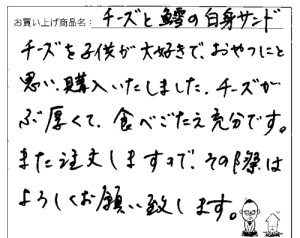 お買い上げ商品名： チーズと鱈の白身サンド
チーズを子供が大好きで、おやつにと
思い、購入いたしました。チーズが
ぶ厚くて、食べごたえ充分です。
また注文しますので、その際は
よろしくお願い致します。